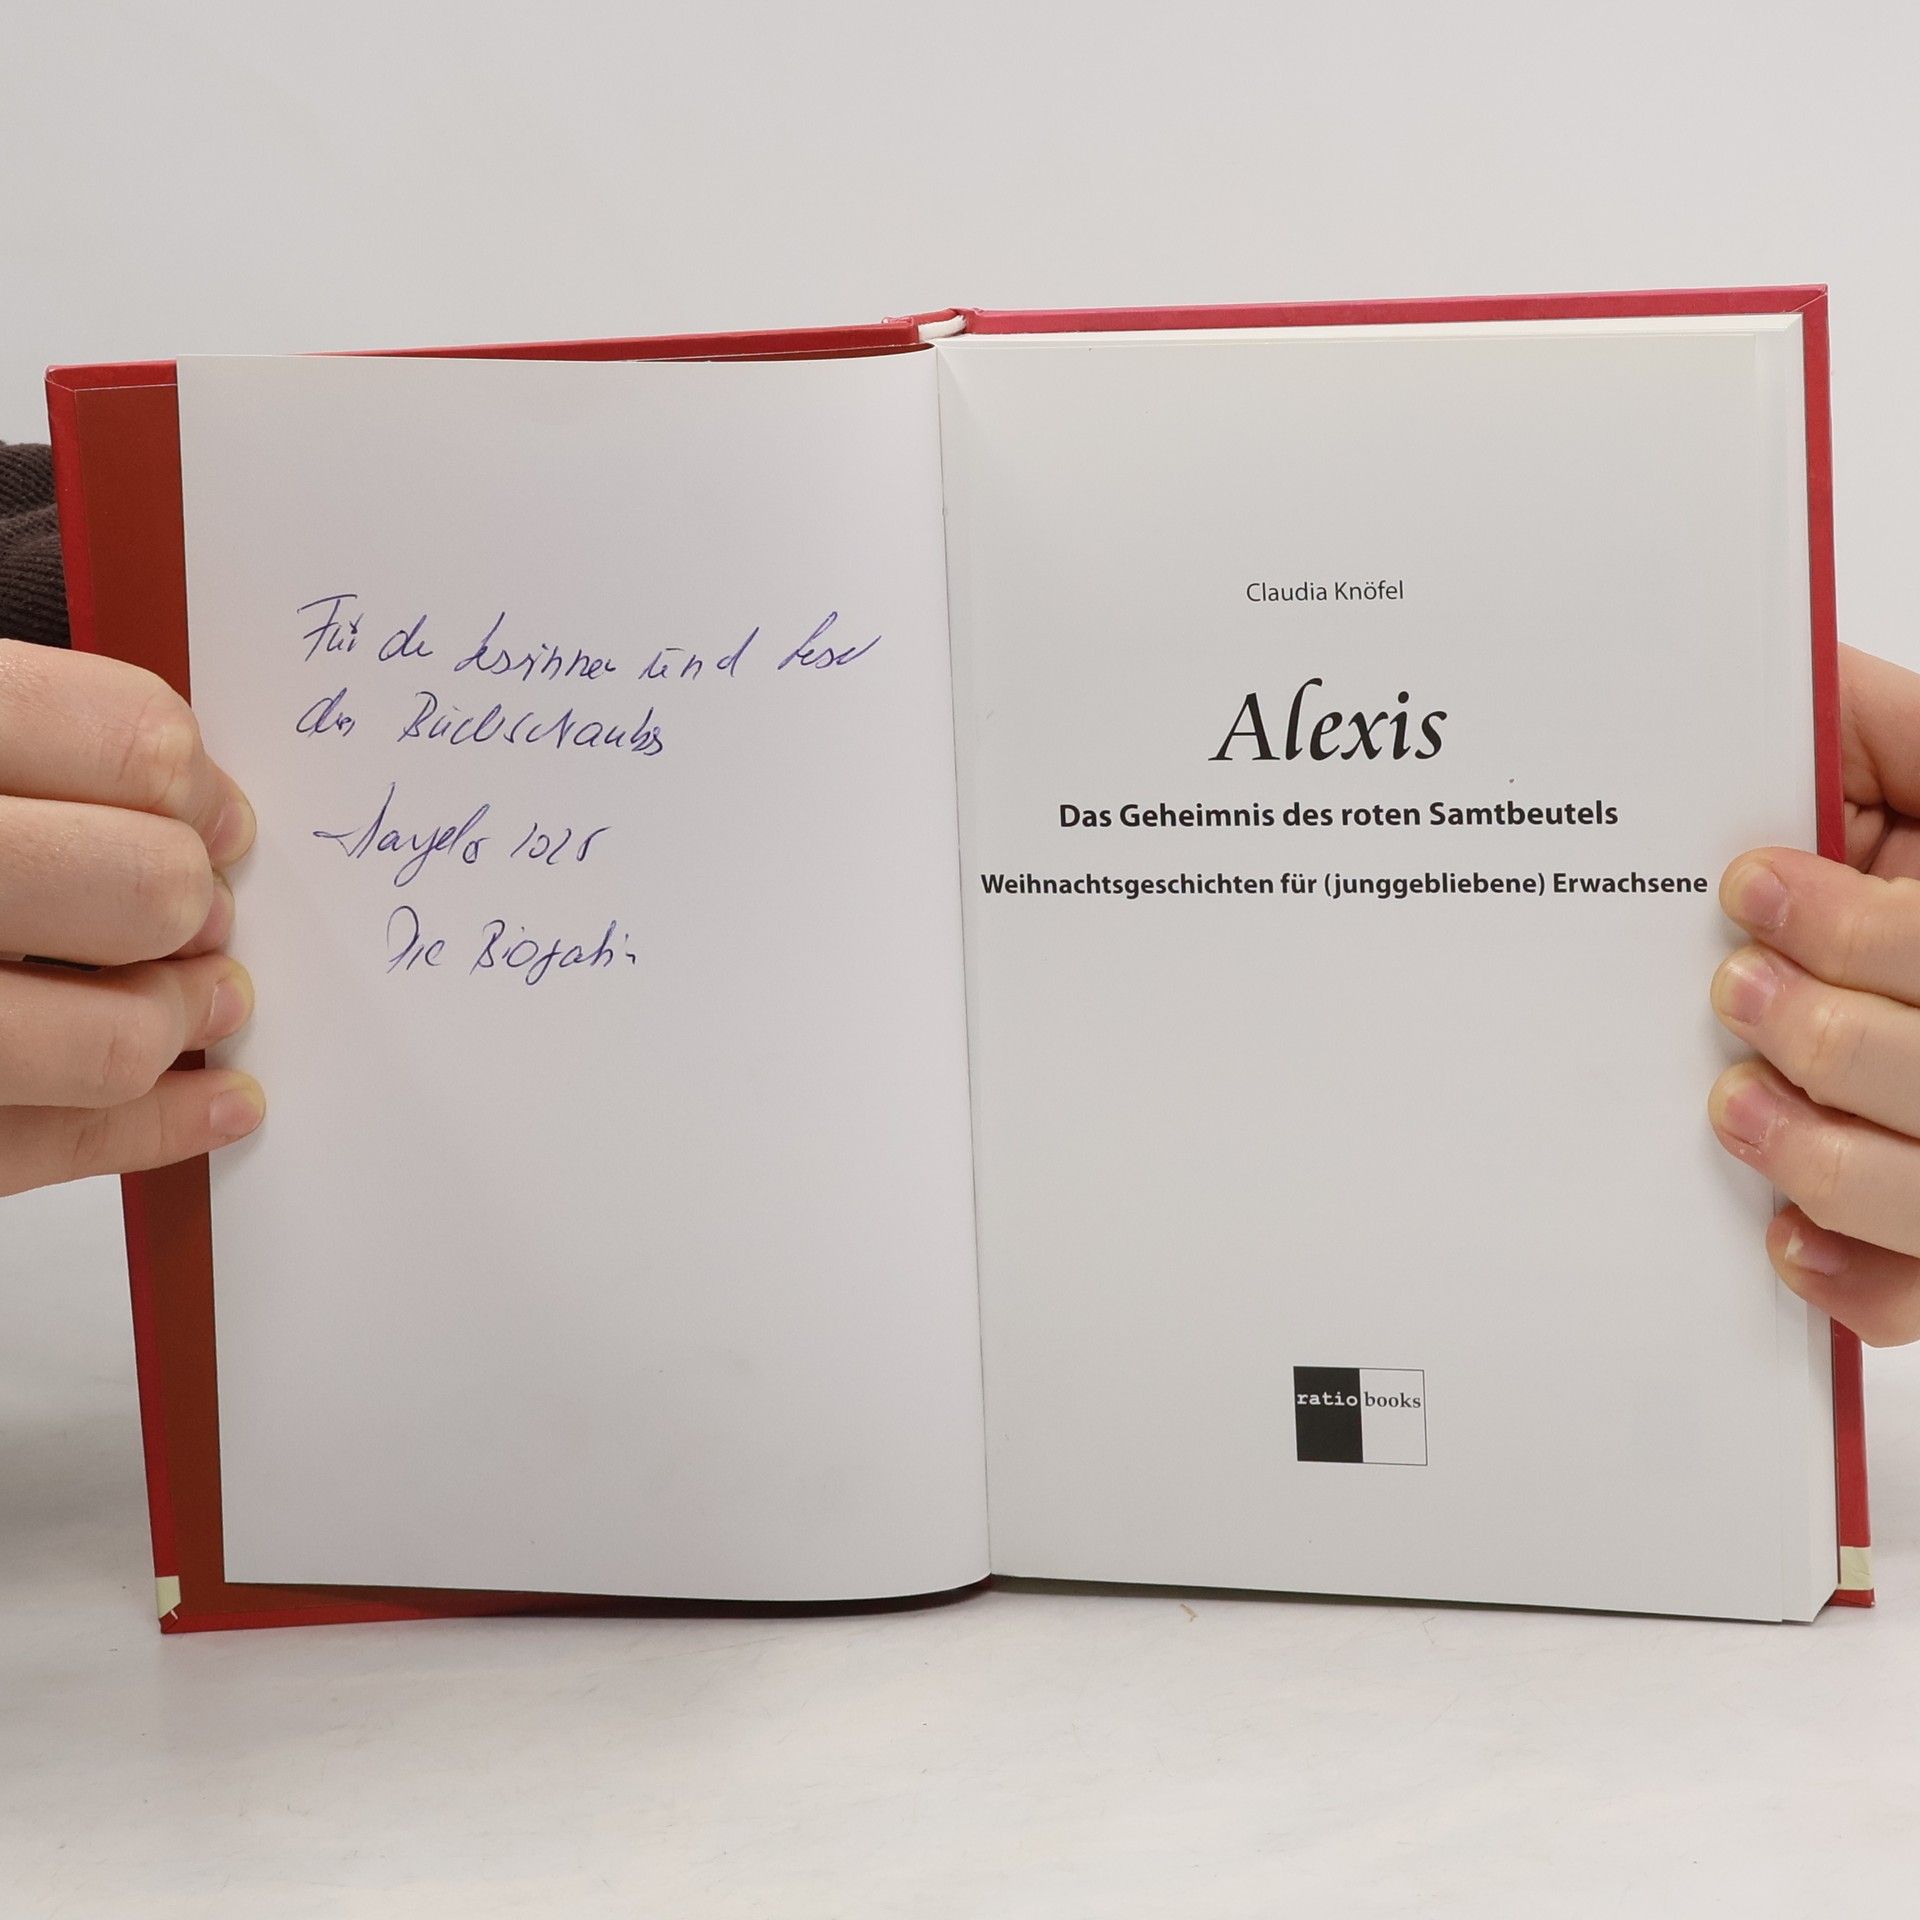 Für die Leserinnen und Leser
des Bücherschranks
Die
Claudia Knöfel
Alexis
Das Geheimnis des roten Samtbeutels
Weihnachtsgeschichten für (junggebliebene) Erwachsene
ratio books